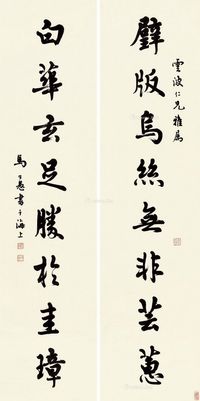 雲波仁兄雅屬
璧版烏絲無非芸蕙
白華玄足勝於圭璋
馬公愚書于海上